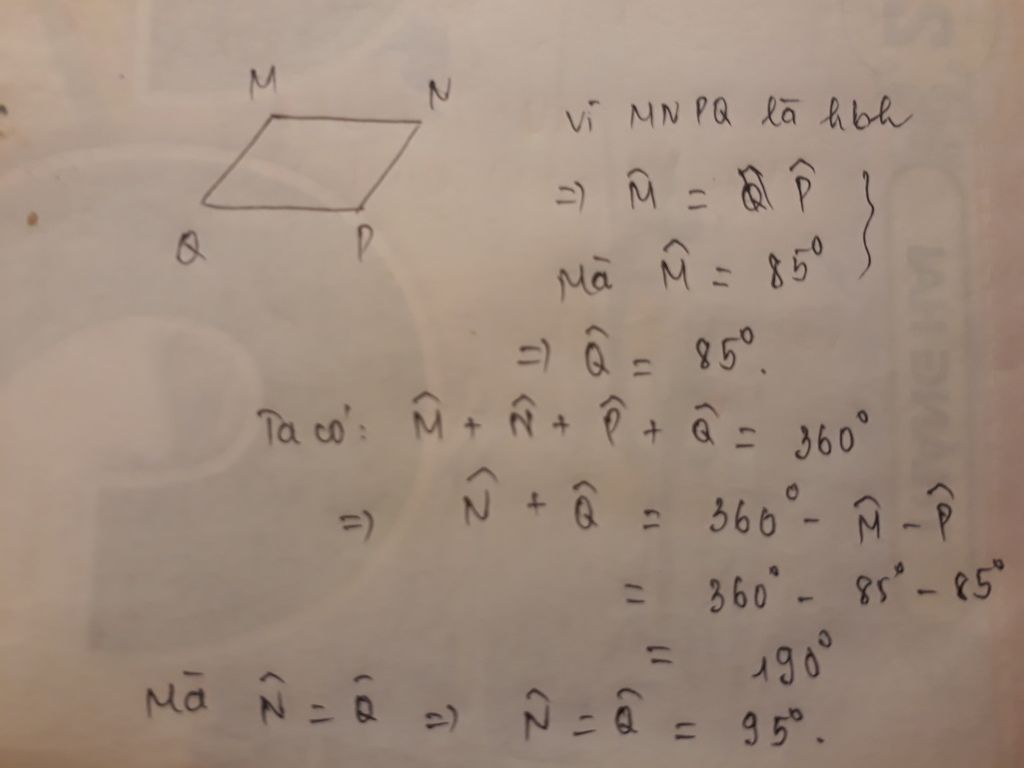 M N
Q P
Vì MNPQ là hbh
=> M̂ = P̂ }
Mà M̂ = 85°
=> Q̂ = 85°.
Ta có: M̂ + N̂ + P̂ + Q̂ = 360°
=> N̂ + Q̂ = 360° - M̂ - P̂
= 360° - 85° - 85°
= 190°
Mà N̂ = Q̂ => N̂ = Q̂ = 95°.